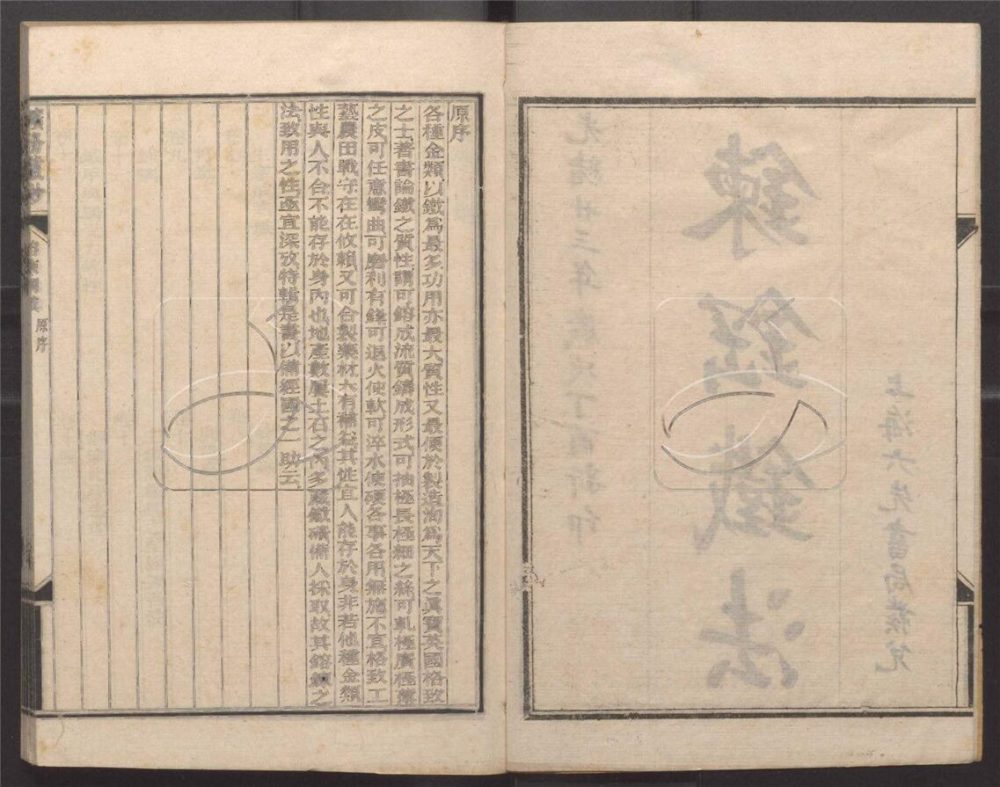 上海六先書局發兌
鐵法
光緒廿三年歲次丁酉新印
原序
各種金類以鐵爲最多功用亦最大質性又最便於製造洵爲天下之眞寶英國格致
之士著書論鐵之質性謂可鎔成流質鑄成形式可抽極長極細之絲可軋極廣極薄
之皮可任意彎曲可磨利有鋒可退火使軟可淬水使硬各事各用無施不宜格致工
藝農田戰守在在攸賴又可合製藥材大有補益其性宜人能存於身非若他種金類
性與人不合不能存於身內也地產數層土石之內多藏鐵礦備人採取故其鎔鍊之
法致用之性亟宜深攷特輯是書以備經國之一助云
原序